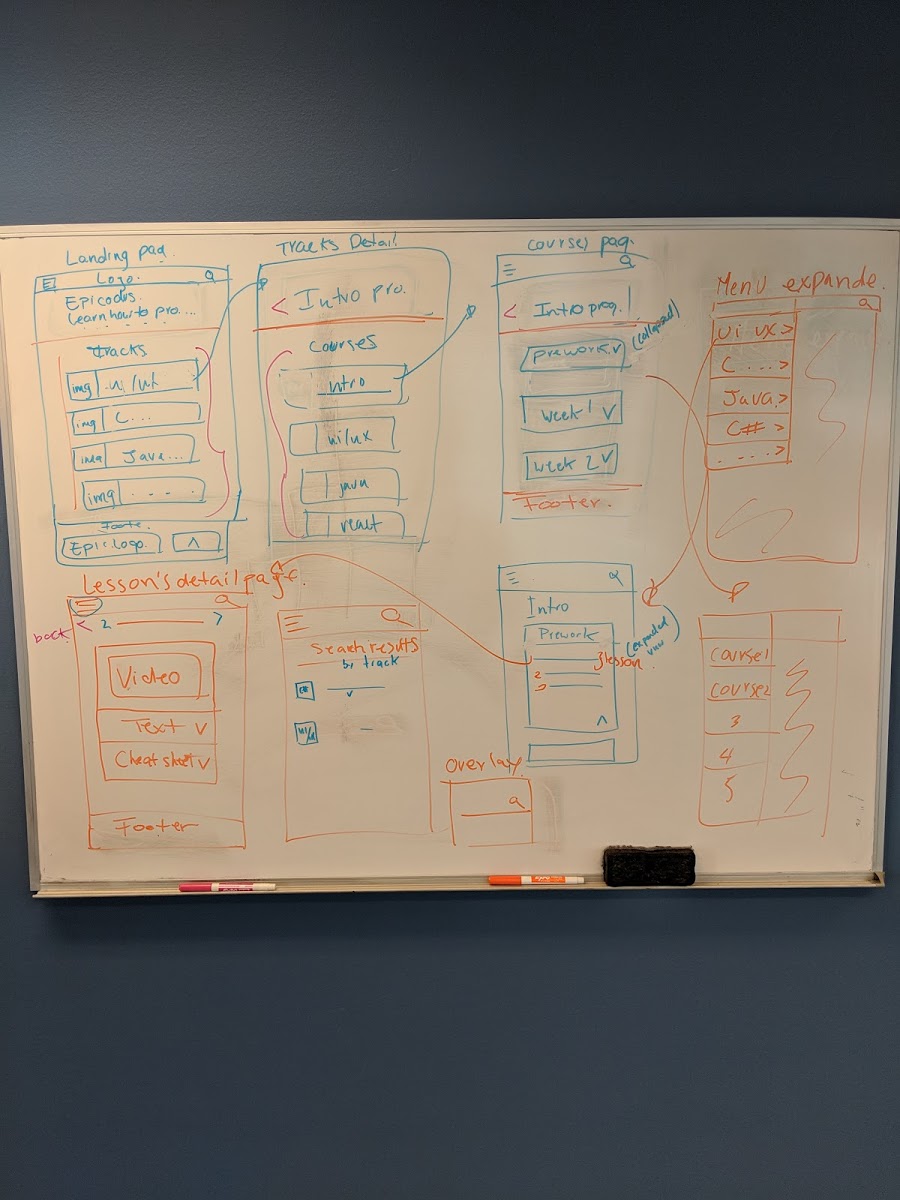 Landing pag.
Logo.
Epicodus.
Learn how to pro....
Tracks
img ui/ux
img C...
img Java...
img . . . .
Foote.
Epic.logo. ^
Tracks Detail
< Intro pro.
Courses
intro
ui/ux
java
react
Courses pag.
< Intro prog.
(collapsed)
prework v
week 1 v
week 2 v
Footer.
Menu expande.
ui ux >
C . . . . >
Java >
C# >
. . . . >
Lesson's detail page.
back < 2 7
Video
Text v
Cheat sheet v
Footer
Search results
by track
C#
Overlay
Intro
Prework
(expanded view)
3 lesson
2
^
course 1
course 2
3
4
5